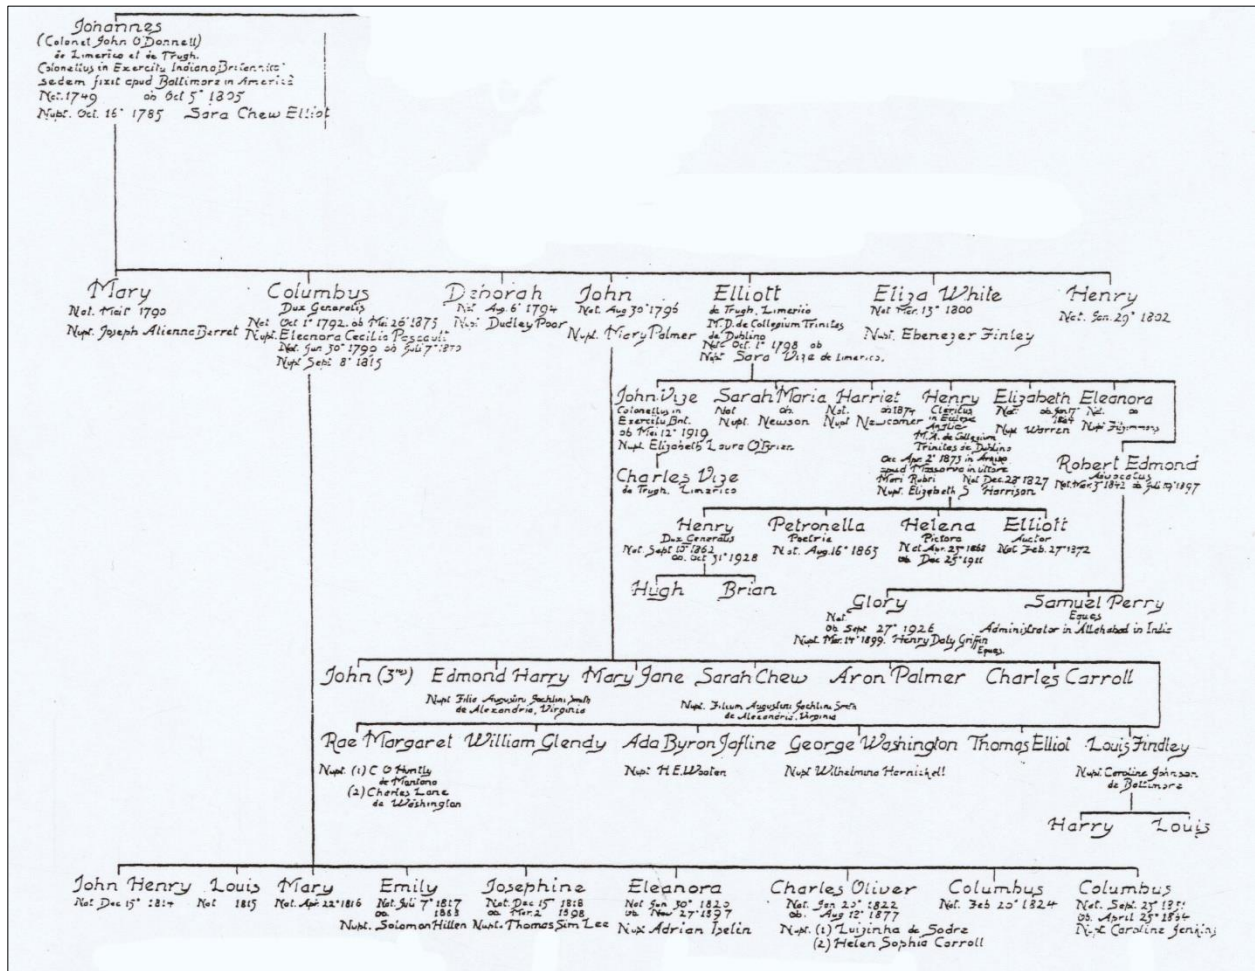 Johannes
(Colonel John O'Donnell)
de Limerico et de Trugh.
Colonellus in Exercitu Indiano Britannico
sedem fixit apud Baltimore in America
Nat. 1749 ob Oct 5° 1805
Nupt. Oct. 16° 1785 Sara Chew Elliot
Mary
Nat. 1790
Nupt. Joseph Barret
Columbus
Dux Generalis
Nat Oct 1° 1792. ob Mai 26° 1873
Nupt. Eleanora Cecilia
Nat. Jun 30° 1790 ob Juli 7° 1870
Nupt Sept 8° 1813
Deborah
Nat Aug. 6° 1794
Nupt Dudley Poor
John
Nat. Aug 30° 1796
Nupt. Mary Palmer
Elliott
de Trugh. Limerico
M.D. de Collegium Trinites
de Dublino
Nat. Oct. 1° 1798 ob
Nupt Sara Vize de Limerico.
Eliza White
Nat Mar. 13° 1800
Nupt. Ebenezer Finley
Henry
Nat. Jan. 29° 1802
John Vize
Colonellus in
Exercitu Brit.
ob Mai 12° 1919
Nupt. Elizabeth Laura O'Brien
Sarah Maria
Nat ob.
Nupt. Newson
Harriet
Nat. ob 1874
Nupt Newcomer
Henry
Clericus
in Eclesie
Anglie
M.A. de Collegium
Trinites de Dublino
Occ Apr. 2° 1873 in
apud Massarva in
Mari Rubri Nat Dec. 28° 1827
Nupt. Elizabeth S Harrison
Elizabeth
Nat. ob Jan 17°
1864
Nupt Warren
Eleanora
Nat. ob
Nupt Fitzimmons
Charles Vize
de Trugh. Limerico
Robert Edmond
Advocatus
Nat. Mar. 3° 1842 ob Juli 19° 1897
Henry
Dux Generalis
Nat Sept 10° 1862
ob. Oct 31° 1928
Petronella
Poetria
Nat. Aug. 16° 1865
Helena
Pictora
Nat Apr. 23° 1868
ob Dec 25° 1911
Elliott
Auctor
Nat Feb. 27° 1872
Hugh Brian
Glory
Nat.
ob Sept 27° 1926
Nupt Mar. 14° 1899. Henry Daly Griffin
Eques.
Samuel Perry
Eques
Administrator in Allahabad in India
John (3rd) Edmond Harry Mary Jane Sarah Chew Aron Palmer Charles Carroll
Nupt Filia Augustini Smith
de Alexandria, Virginia
Nupt. Filium Augustini Smith
de Alexandria, Virginia
Rae Margaret William Glendy Ada Byron Jafline George Washington Thomas Elliot Louis Findley
Nupt. (1) C O Huntly
de Montana
(2) Charles Lane
de Washington
Nupt H.E. Wooten
Nupt Wilhelmina Harnickell
Nupt Caroline Johnson
de Baltimore
Harry Louis
John Henry
Nat Dec 15° 1814
Louis
Nat 1815
Mary
Nat. Apr. 22° 1816
Emily
Nat. Juli 7° 1817
ob. 1883
Nupt. Solomon Hillen
Josephine
Nat. Dec 15° 1818
ob. Mar. 2° 1898
Nupt. Thomas Sim Lee
Eleanora
Nat Jun 30° 1820
ob. Nov 27° 1897
Nupt Adrian Iselin
Charles Oliver
Nat. Jan 20° 1822
ob. Aug 12° 1877
Nupt. (1) Luizinha de Sodre
(2) Helen Sophia Carroll
Columbus
Nat. Feb 20° 1824
Columbus
Nat. Sept. 25° 1831
Ob. April 25° 1864
Nupt Caroline Jenkins